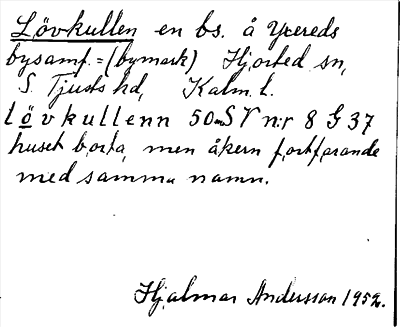 Lövkullen en bs. å Yxereds
bysamf. = (bymark) Hjorted sn,
S. Tjusts hd, Kalm. l.
lövkullenn 50m SV nr 8 G 37
huset borta, men åkern fortfarande
med samma namn.
Hjalmar Andersson 1952.